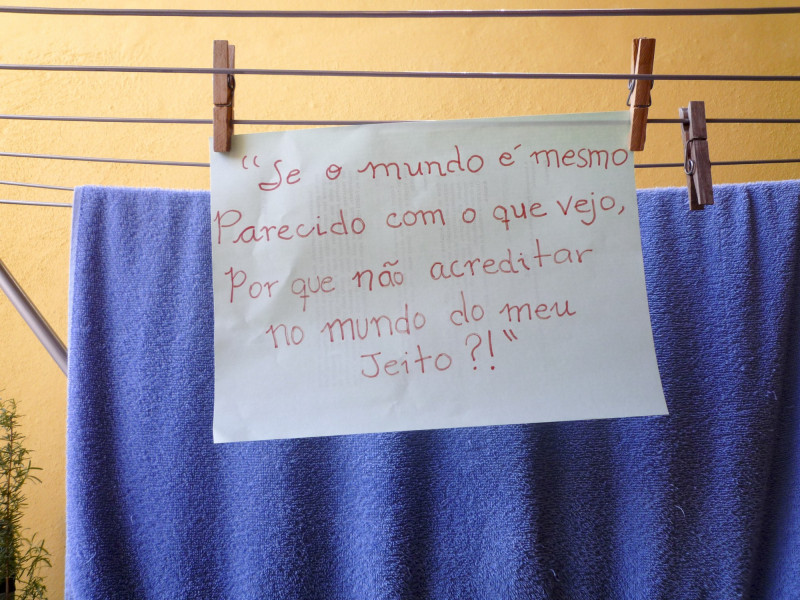 "Se o mundo é mesmo
Parecido com o que vejo,
Por que não acreditar
no mundo do meu
Jeito?!"